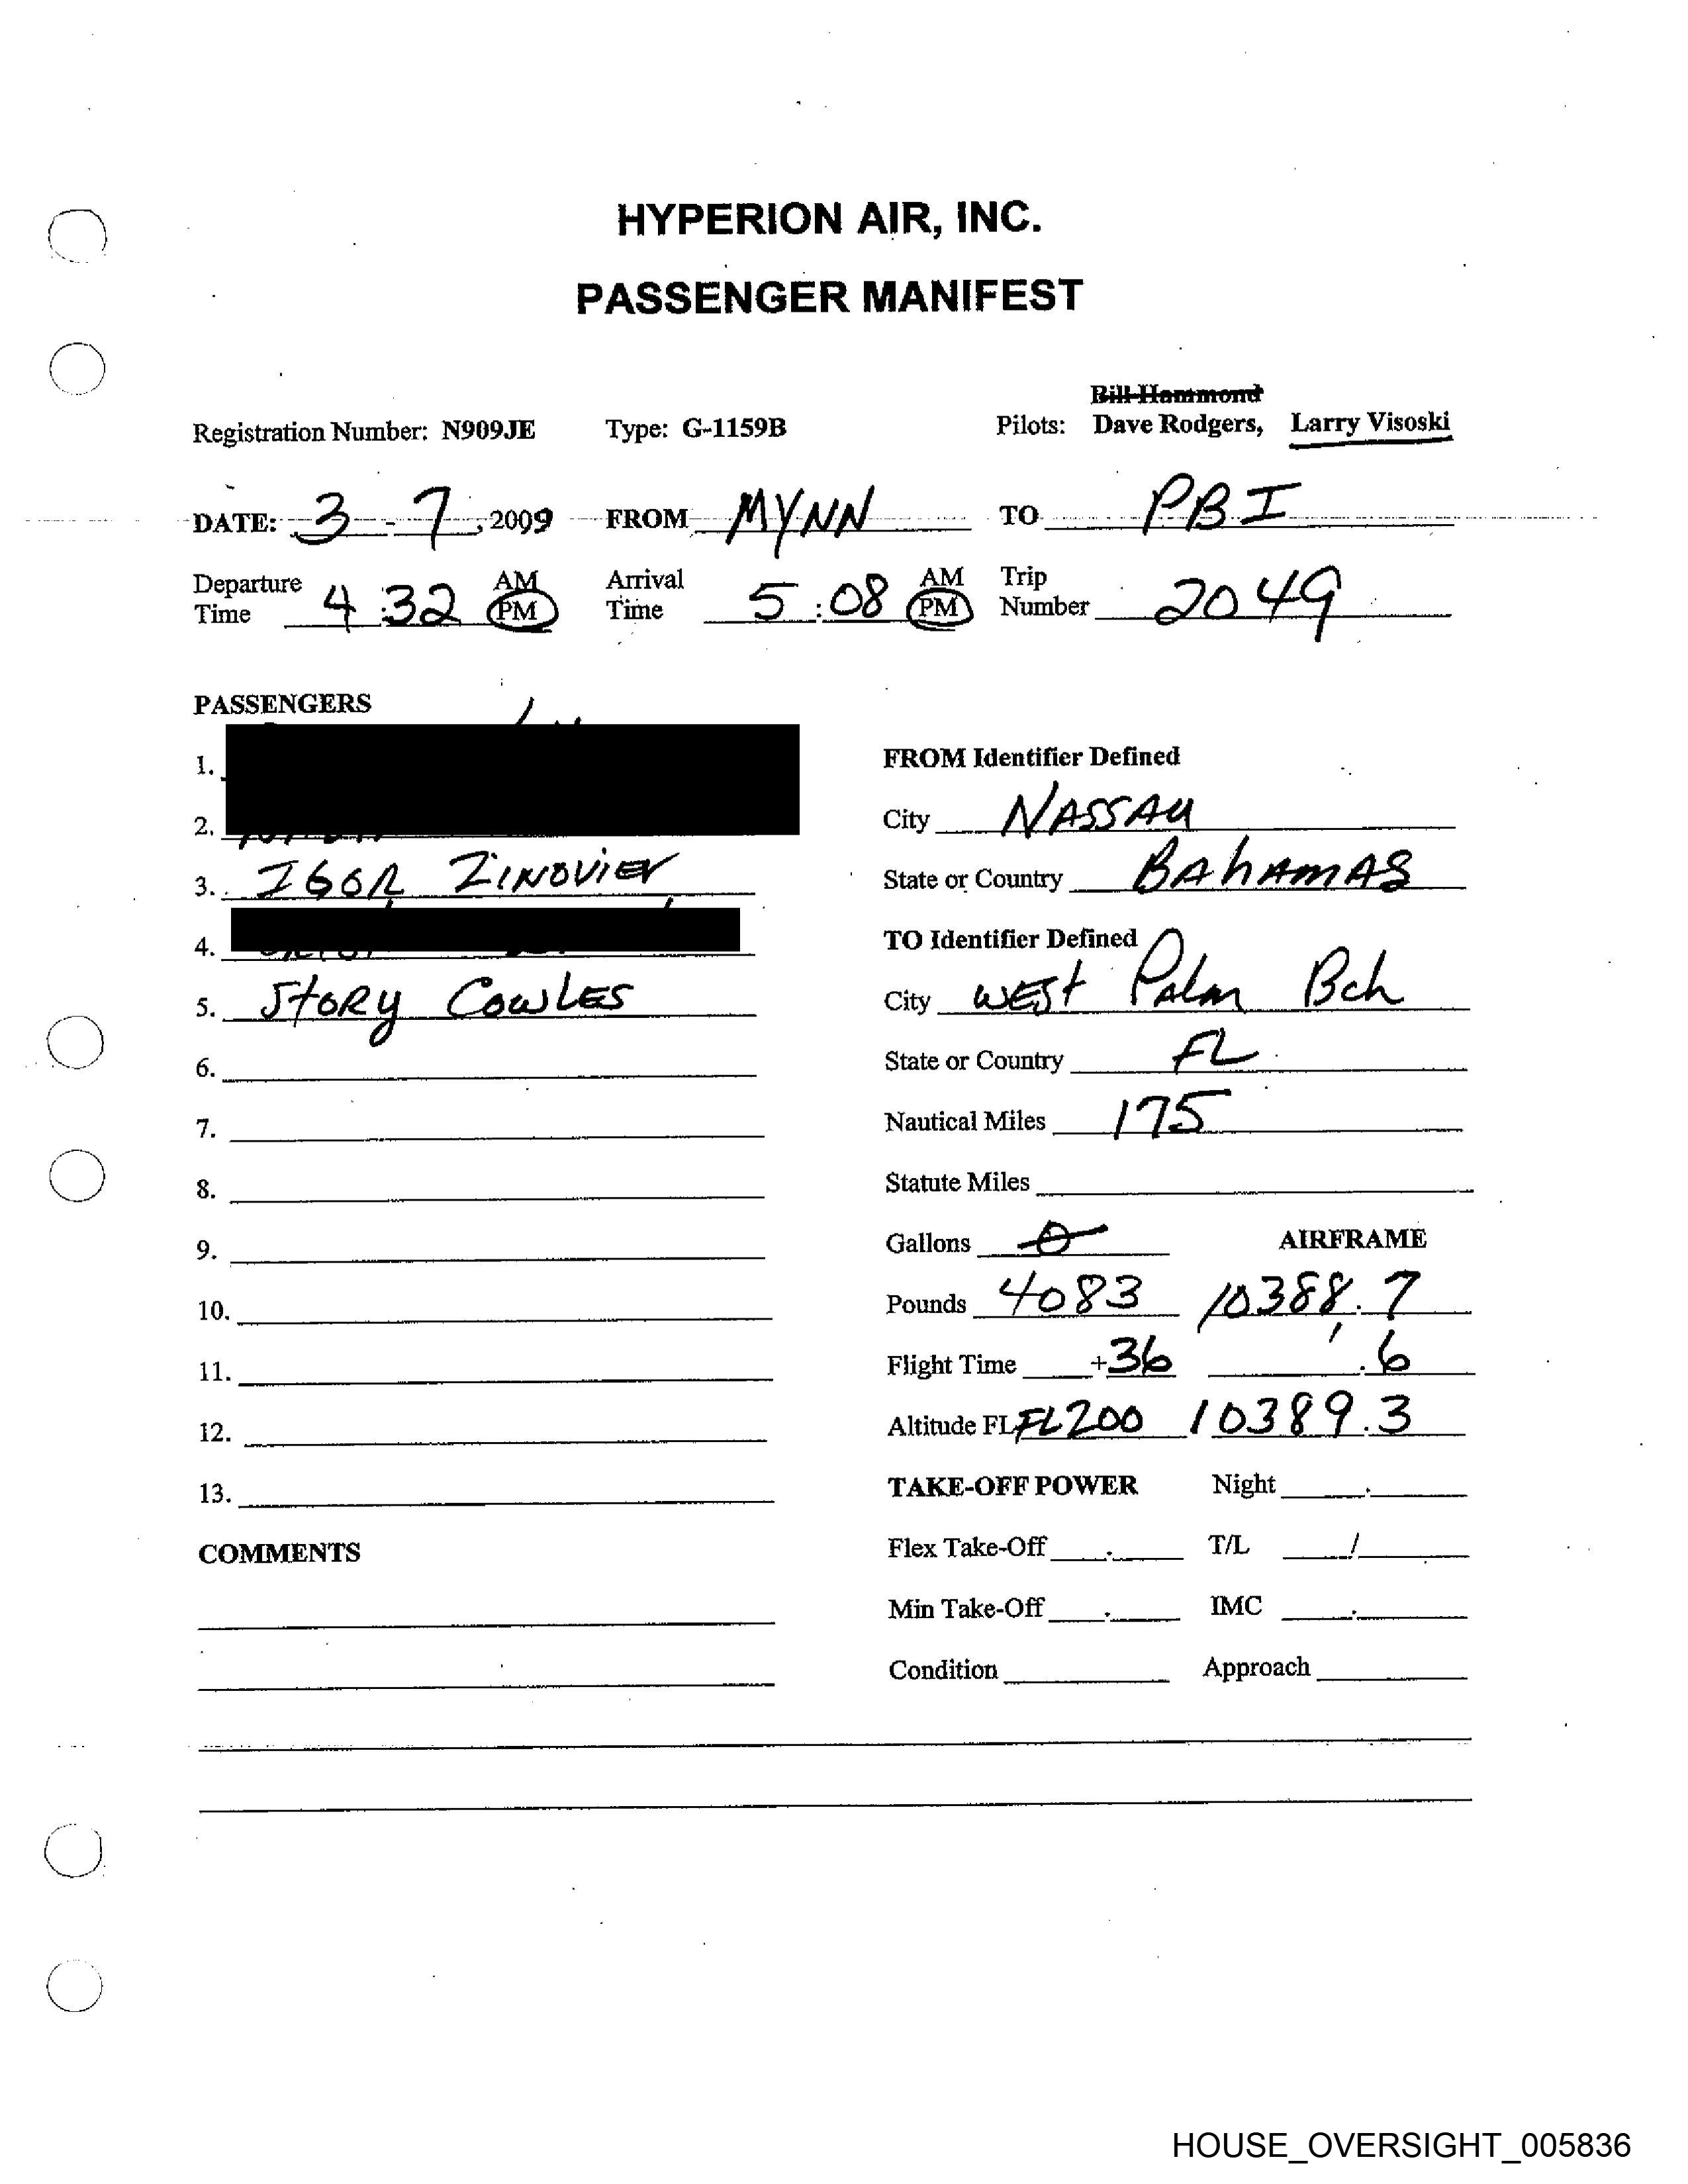 HYPERION AIR, INC.
PASSENGER MANIFEST
Bill Hammond
Registration Number: N909JE Type: G-1159B Pilots: Dave Rodgers, Larry Visoski
DATE: 3 - 7, 2009 FROM MYNN TO PBI
Departure Time 4:32 AM PM Arrival Time 5:08 AM PM Trip Number 2049
PASSENGERS
1.
FROM Identifier Defined
2.
City NASSAU
3. IGOR ZINOVIEV
State or Country BAhAMAS
4.
TO Identifier Defined
5. StORY COWLES
City WESt Palm Bch
6.
State or Country FL
7.
Nautical Miles 175
8.
Statute Miles
9.
Gallons 0 AIRFRAME
10.
Pounds 4083 10388.7
11.
Flight Time +36 .6
12.
Altitude FL FL200 10389.3
13.
TAKE-OFF POWER Night
COMMENTS
Flex Take-Off . T/L /
Min Take-Off . IMC .
Condition Approach
HOUSE_OVERSIGHT_005836